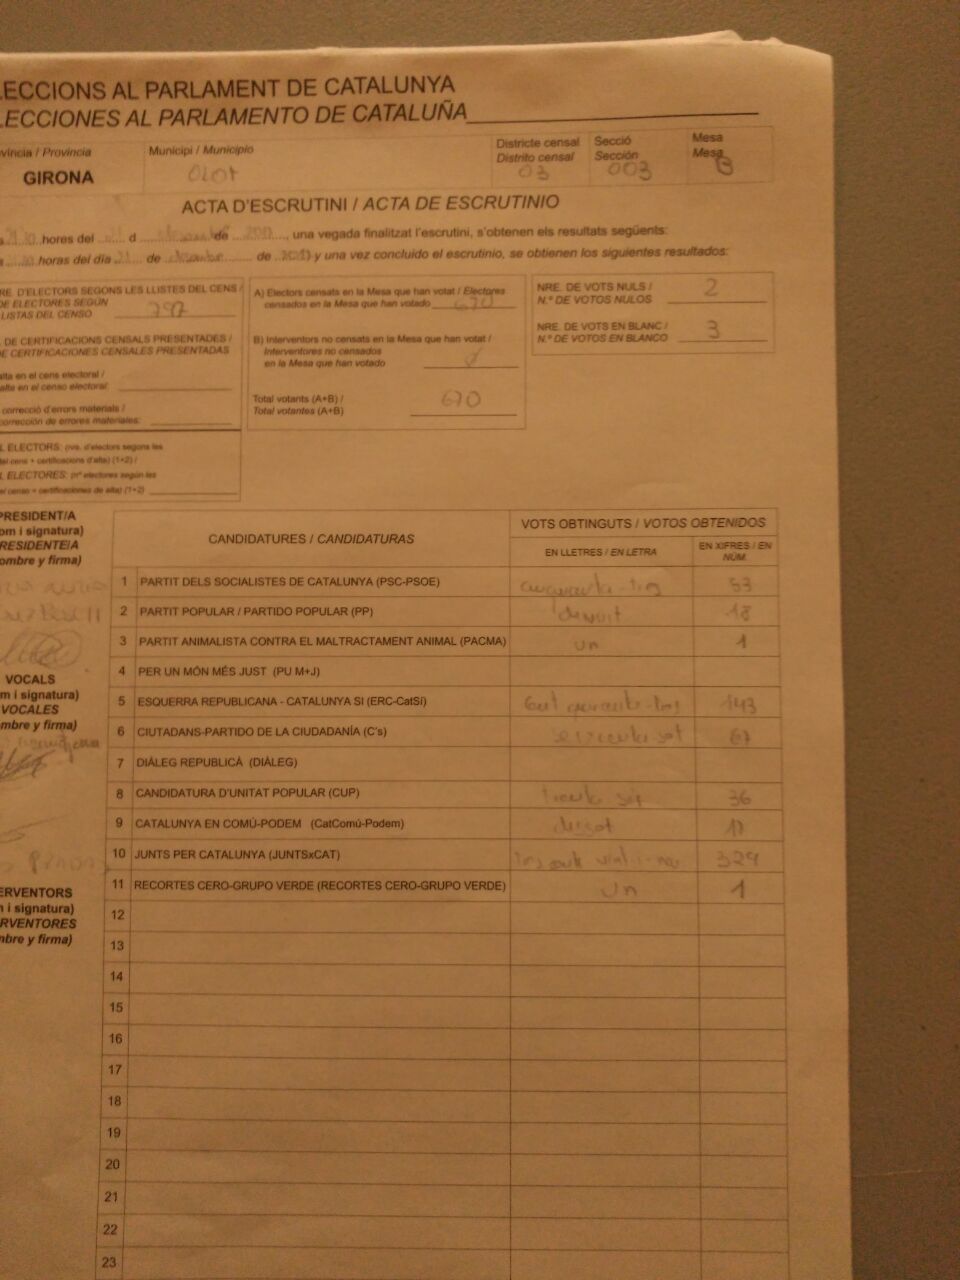 LECCIONS AL PARLAMENT DE CATALUNYA
LECCIONES AL PARLAMENTO DE CATALUÑA
víncia / Provincia
GIRONA
Municipi / Municipio
Olot
Districte censal
Distrito censal
03
Secció
Sección
003
Mesa
Mesa
B
ACTA D'ESCRUTINI / ACTA DE ESCRUTINIO
hores del d de , una vegada finalitzat l'escrutini, s'obtenen els resultats següents:
horas del día de de 2017 y una vez concluido el escrutinio, se obtienen los siguientes resultados:
RE. D'ELECTORS SEGONS LES LLISTES DEL CENS /
DE ELECTORES SEGÚN
LISTAS DEL CENSO 797
. DE CERTIFICACIONS CENSALS PRESENTADES /
DE CERTIFICACIONES CENSALES PRESENTADAS
alta en el cens electoral /
alta en el censo electoral:
correcció d'errors materials /
corrección de errores materiales:
L ELECTORS: (nre. d'electors segons les
del cens + certificacions d'alta) (1+2) /
L ELECTORES: (nº electores según las
el censo + certificaciones de alta) (1+2)
A) Electors censats en la Mesa que han votat / Electores
censados en la Mesa que han votado 670
B) Interventors no censats en la Mesa que han votat /
Interventores no censados
en la Mesa que han votado
Total votants (A+B) /
Total votantes (A+B) 670
NRE. DE VOTS NULS /
N.º DE VOTOS NULOS 2
NRE. DE VOTS EN BLANC /
N.º DE VOTOS EN BLANCO 3
PRESIDENT/A
om i signatura)
RESIDENTE/A
ombre y firma)
VOCALS
m i signatura)
VOCALES
mbre y firma)
ERVENTORS
n i signatura)
RVENTORES
nbre y firma)
CANDIDATURES / CANDIDATURAS
VOTS OBTINGUTS / VOTOS OBTENIDOS
EN LLETRES / EN LETRA
EN XIFRES / EN
NÚM.
1 PARTIT DELS SOCIALISTES DE CATALUNYA (PSC-PSOE) 53
2 PARTIT POPULAR / PARTIDO POPULAR (PP) divuit 18
3 PARTIT ANIMALISTA CONTRA EL MALTRACTAMENT ANIMAL (PACMA) un 1
4 PER UN MÓN MÉS JUST (PU M+J)
5 ESQUERRA REPUBLICANA - CATALUNYA SI (ERC-CatSí) Cent quaranta-tres 143
6 CIUTADANS-PARTIDO DE LA CIUDADANÍA (C's) seixanta-set 67
7 DIÀLEG REPUBLICÀ (DIÀLEG)
8 CANDIDATURA D'UNITAT POPULAR (CUP) trenta sis 36
9 CATALUNYA EN COMÚ-PODEM (CatComú-Podem) disset 17
10 JUNTS PER CATALUNYA (JUNTSxCAT) vint-i-nou 329
11 RECORTES CERO-GRUPO VERDE (RECORTES CERO-GRUPO VERDE) Un 1
12
13
14
15
16
17
18
19
20
21
22
23